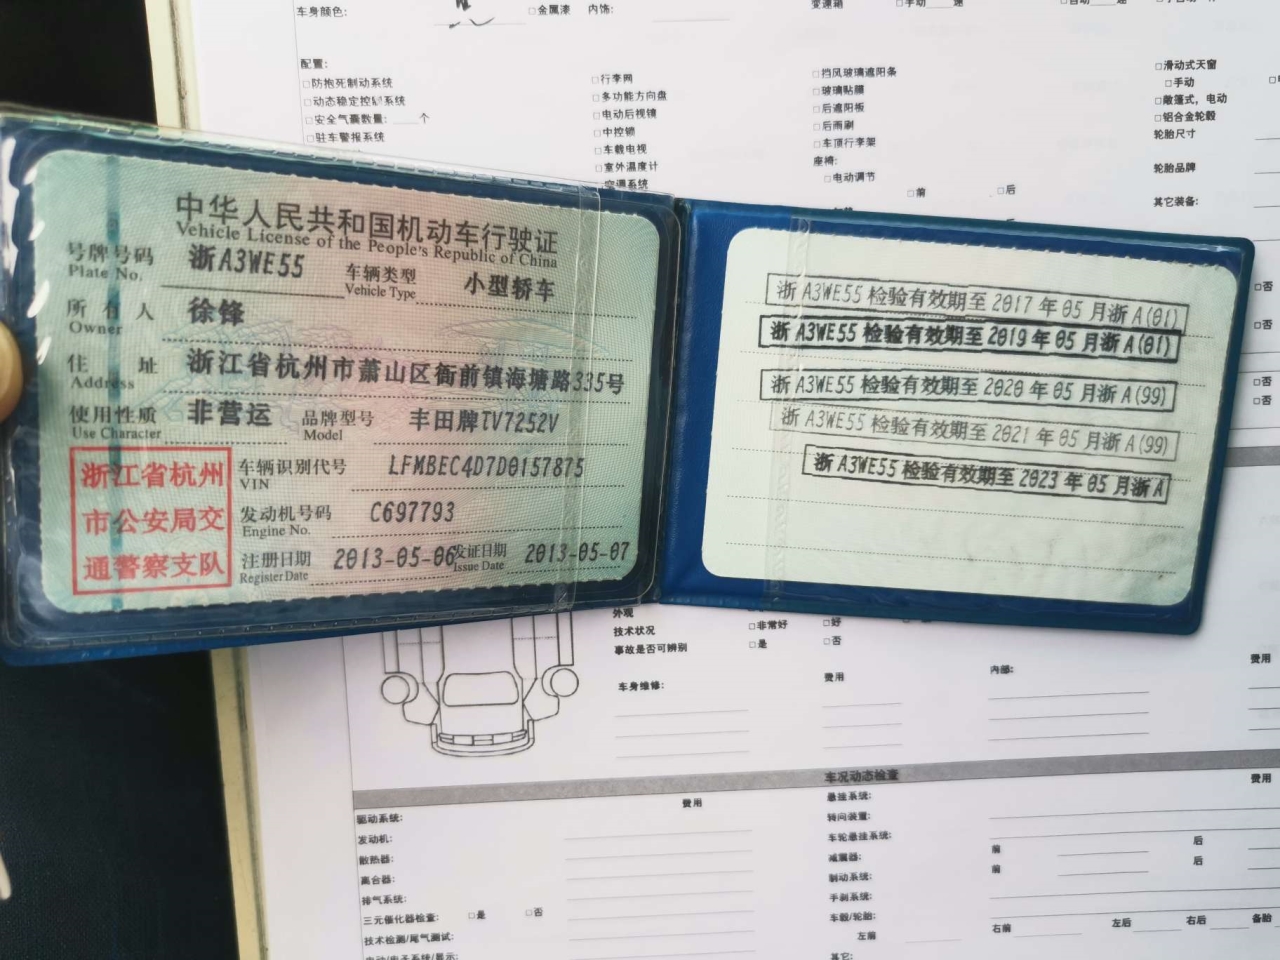 车身颜色:
□金属漆
内饰:
变速箱
□手动
速
配置:
□防抱死制动系统
□动态稳定控制系统
□安全气囊数量:____个
□驻车警报系统
□行李网
□多功能方向盘
□电动后视镜
□中控锁
□车载电视
□室外温度计
□空调系统
□挡风玻璃遮阳条
□玻璃贴膜
□后遮阳板
□后雨刷
□车顶行李架
座椅:
□电动调节
□前
□后
□滑动式天窗
□手动
□敞篷式，电动
□铝合金轮毂
轮胎尺寸
轮胎品牌
其它装备:
中华人民共和国机动车行驶证
Vehicle License of the People's Republic of China
号牌号码 浙A3WE55 车辆类型 小型轿车
Plate No. Vehicle Type
所有人 徐锋
Owner
住址 浙江省杭州市萧山区衙前镇海塘路335号
Address
使用性质 非营运 品牌型号 丰田牌TV7252V
Use Character Model
浙江省杭州
市公安局交
通警察支队
车辆识别代号 LFMBEC4D7D0157875
VIN
发动机号码 C697793
Engine No.
注册日期 2013-05-06 发证日期 2013-05-07
Register Date Issue Date
浙A3WE55检验有效期至2017年05月浙A(01)
浙A3WE55检验有效期至2019年05月浙A(01)
浙A3WE55检验有效期至2020年05月浙A(99)
浙A3WE55检验有效期至2021年05月浙A(99)
浙A3WE55检验有效期至2023年05月浙A
□否
□否
□否
□否
外观
技术状况 □非常好 □好
事故是否可辨别 □是 □否
车身维修: 费用 内部: 费用
车况动态检查
费用
费用
驱动系统:
发动机:
散热器:
离合器:
排气系统:
三元催化器检查: □是 □否
技术检测/尾气测试:
悬挂系统:
转向装置:
车轮悬挂系统: 前 后
减震器: 前 后
制动系统:
手刹系统:
车毂/轮胎:
左前 右前 左后 右后 备胎
其它: